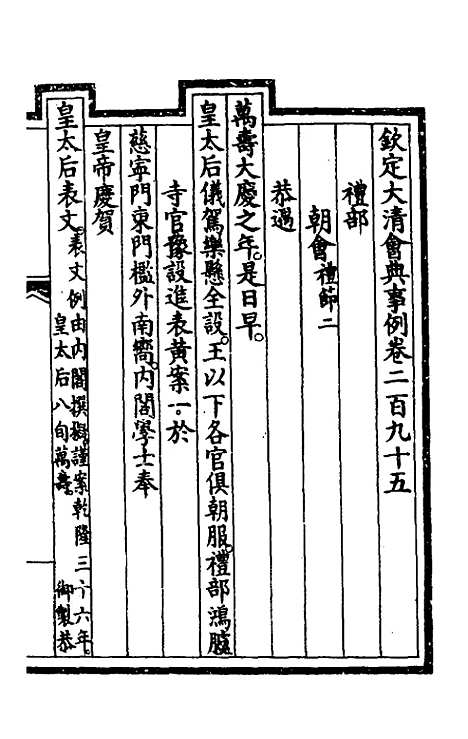 欽定大清會典事例卷二百九十五
禮部
朝會禮節二
恭遇
萬壽大慶之年。是日早。
皇太后儀駕樂懸全設。王以下各官俱朝服。禮部鴻臚
寺官豫設進表黃案一。於
慈寧門東門檻外南嚮。內閣學士奉
皇帝慶賀
皇太后表文。表文例由內閣撰擬。謹案乾隆三十六年。
皇太后八旬萬壽。御製恭